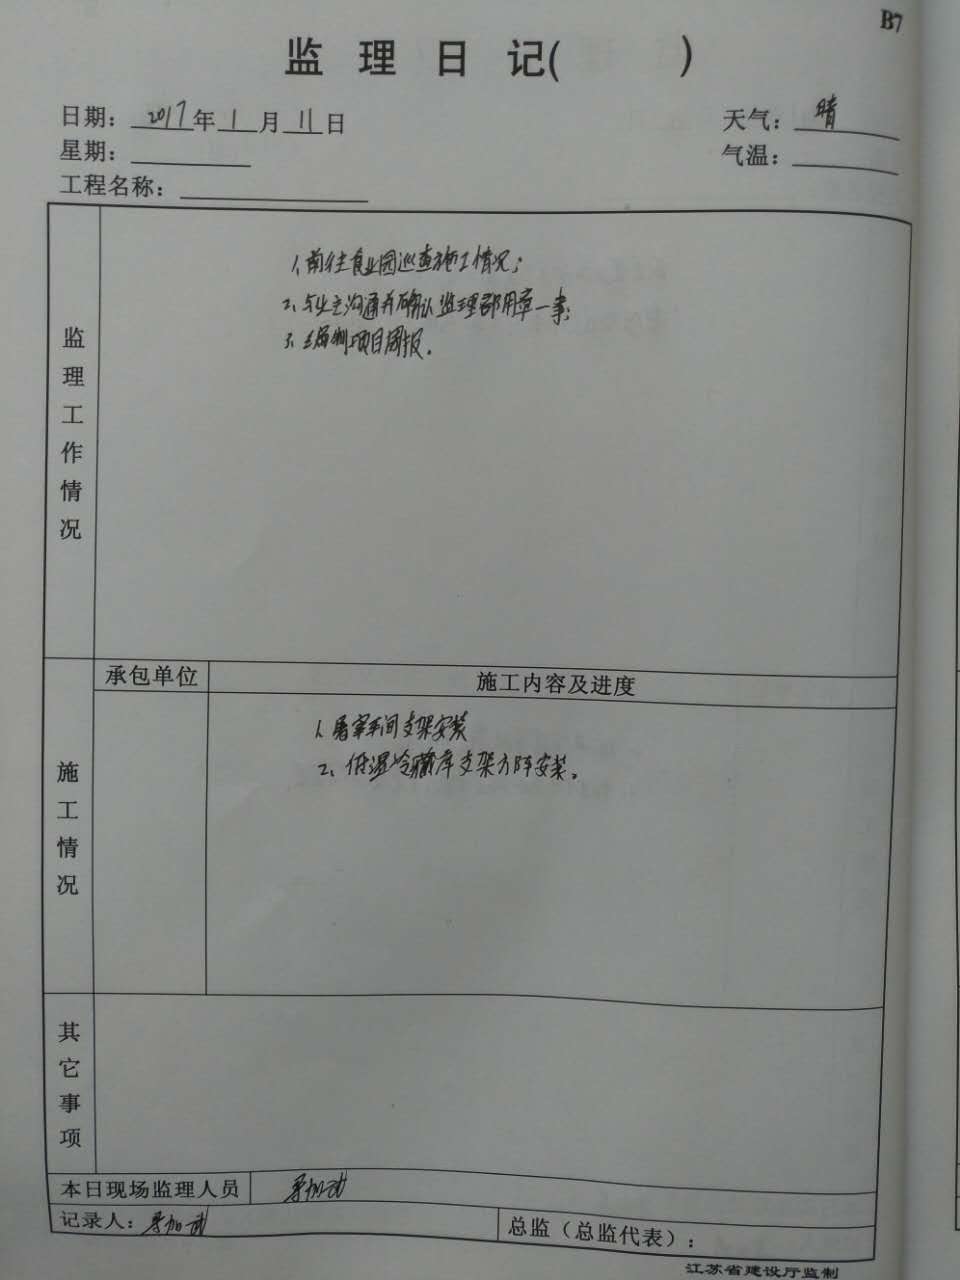 B7
监理日记( )
日期：2017年1月11日
天气：晴
星期：
气温：
工程名称：
监理工作情况
1、前往食业园巡查施工情况；
2、与业主沟通并确认监理部用章一事；
3、编制项目周报。
承包单位
施工内容及进度
施工情况
1、屠宰车间支架安装
2、低温冷藏库支架方阵安装。
其它事项
本日现场监理人员
记录人：
总监（总监代表）：
江苏省建设厅监制